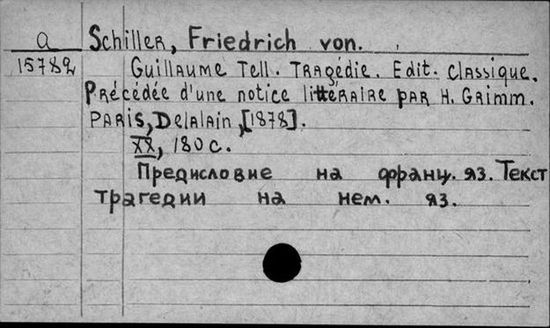 a Schiller, Friedrich von.
15782 Guillaume Tell. Tragédie. Edit. classique.
Précédée d'une notice littéraire par H. Grimm.
Paris, Delalain, [1878].
XX, 180 с.
Предисловие на франц. яз. Текст
трагедии на нем. яз.